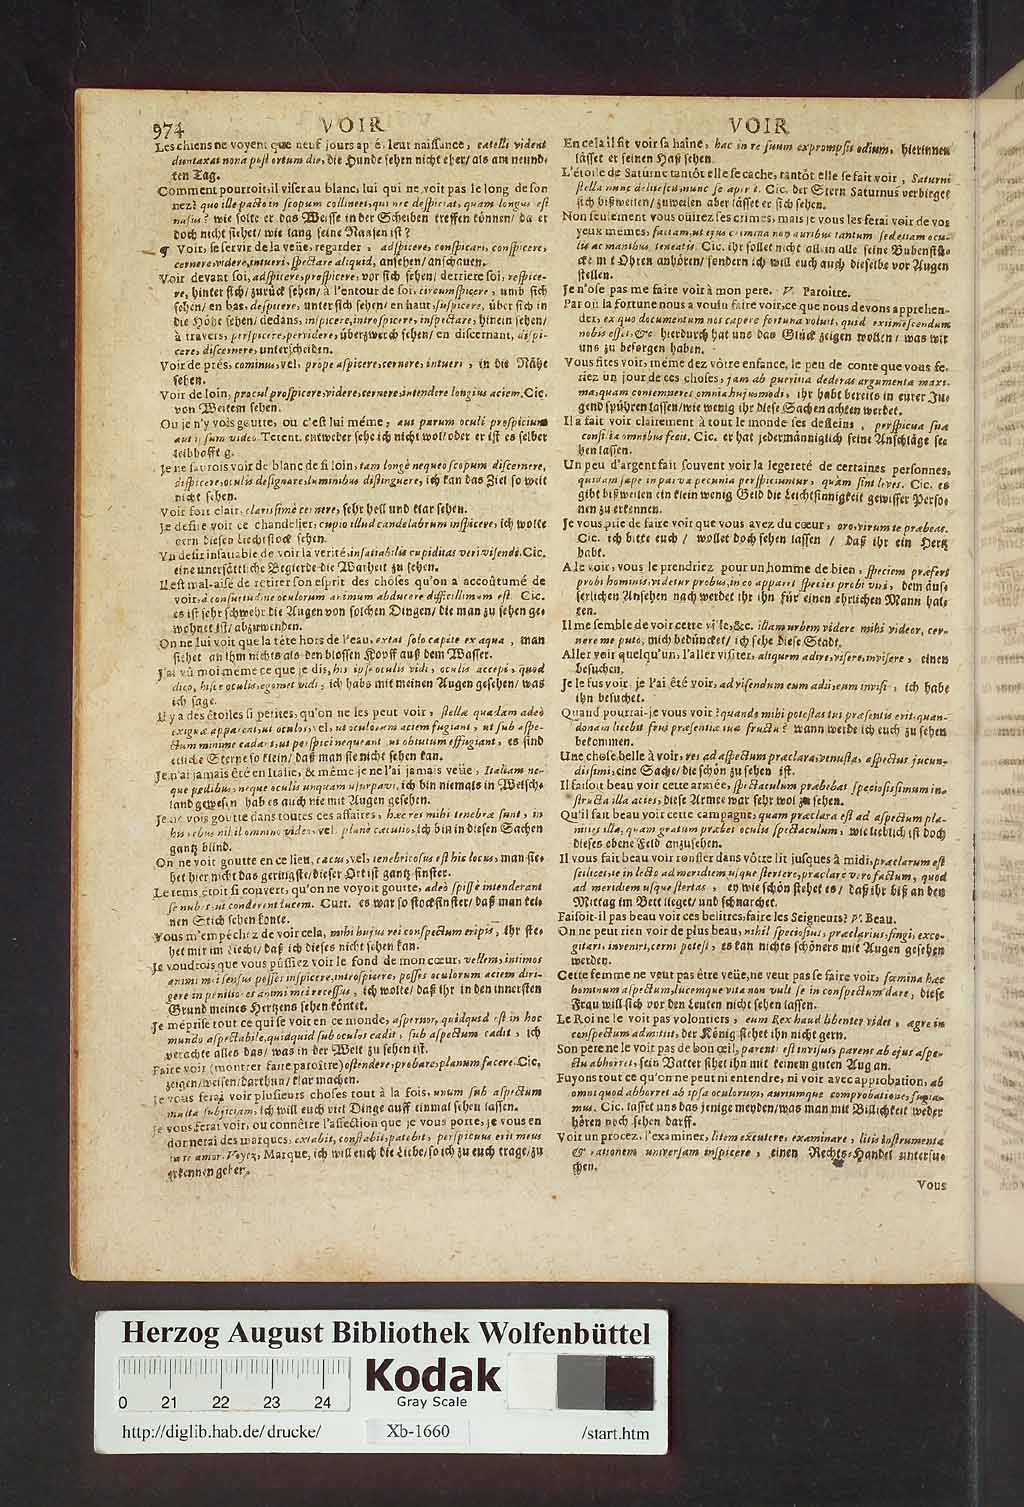 974 VOIR
Les chiens ne voyent que neuf jours aprés leur naissance, catelli vident
duntaxat nona post ortum die, die Hunde sehen nicht eher/ als am neund-
ten Tag.
Comment pourroit, il viser au blanc, lui qui ne voit pas le long de son
nez? quo ille pacto in scopum collineet, qui nec despiciat, quam longus est
nasus? wie solte er das Weisse in der Scheiben treffen können/ da er
doch nicht siehet/ wie lang seine Naasen ist?
¶ Voir, se servir de la veüe, regarder, adspicere, conspicari, conspicere,
cernere, videre, intueri, spectare aliquid, ansehen/ anschauen.
Voir devant soi, adspicere, prospicere, vor sich sehen/ derriere soi, respice-
re, hinter sich/ zurück sehen/ à l'entour de soi, circumspicere, umb sich
sehen/ en bas, despicere, unter sich sehen/ en haut, suspicere, über sich in
die Höhe sehen/ dedans, inspicere, introspicere, inspectare, hinein sehen/
à travers, perspicere, pervidere, überzwerch sehen/ en discernant, dispi-
cere, discernere, unterscheiden.
Voir de prés, cominus, vel, prope aspicere, cernere, intueri, in die Nähe
sehen.
Voir de loin, procul prospicere, videre, cernere, intendere longius aciem. Cic.
von Weitem sehen.
Ou je n'y vois goutte, ou c'est lui méme, aut parum oculi prospiciunt
aut ipsum video. Terent. entweder sehe ich nicht wol/ oder er ist es selber
leibhafftig.
Je ne saurois voir de blanc de si loin, tam longè nequeo scopum discernere,
dispicere, oculis designare, luminibus distinguere, ich kan das Ziel so weit
nicht sehen.
Voir fort clair, clarissimè cernere, sehr hell und klar sehen.
Je desire voir ce chandelier, cupio illud candelabrum inspicere, ich wolte
gern diesen Liechtstock sehen.
Un desir insatiable de voir la verité, insatiabilis cupiditas veri visendi. Cic.
eine unersättliche Begierde die Warheit zu sehen.
Il est mal-aisé de retirer son esprit des choses qu'on a accoûtumé de
voir, à consuetudine oculorum animum abducere difficillimum est. Cic.
es ist sehr schwehr die Augen von solchen Dingen/ die man zu sehen ge-
wohnet ist/ abzuwenden.
On ne lui voit que la téte hors de l'eau, extat solo capite ex aqua, man
siehet an ihm nichts als den blossen Kopff auß dem Wasser.
J'ai vû moi méme ce que je dis, his ipse oculis vidi, oculis accepi, quod
dico, hisce oculis, egomet vidi, ich habs mit meinen Augen gesehen/ was
ich sage.
Il y a des étoiles si petites, qu'on ne les peut voir, stellæ quædam adeò
exiguæ apparent, ut oculos, vel, ut oculorum aciem fugiant, ut sub aspe-
ctum minime cadant, ut perspici nequeant, ut obtutum effugiant, es sind
etliche Sterne so klein/ daß man sie nicht sehen kan.
Je n'ai jamais été en Italie, & méme je ne l'ai jamais veüe, Italiam ne-
que pedibus, neque oculis unquam usurpavi, ich bin niemals in Welsch-
land gewesen hab es auch nie mit Augen gesehen.
Je ne vois goutte dans toutes ces affaires, hæ res mihi tenebræ sunt, in
his rebus nihil omnino video, vel, planè cæcutio, ich bin in diesen Sachen
gantz blind.
On ne voit goutte en ce lieu, cæcus, vel, tenebricosus est hic locus, man sie-
het hier nicht das geringste/ dieser Ort ist gantz finster.
Le tems étoit si couvert, qu'on ne voyoit goutte, adeò spissè intenderant
se nubes, ut conderent lucem. Curt. es war so stockfinster/ daß man kei-
nen Stich sehen konte.
Vous m'empéchez de voir cela, mihi hujus rei conspectum eripis, ihr ste-
het mir im Liecht/ daß ich dieses nicht sehen kan.
Je voudrois que vous pûssiez voir le fond de mon cœur, vellem, intimos
animi mei sensus posses inspicere, introspicere, posses oculorum aciem diri-
gere in penitiores animi mei recessus, ich wolte/ daß ihr in den innersten
Grund meines Hertzens sehen köntet.
Je méprise tout ce qui se voit en ce monde, aspernor, quidquid est in hoc
mundo aspectabile, quidquid sub oculos cadit, sub aspectum cadit, ich
verachte alles das/ was in der Welt zu sehen ist.
Faire voir (montrer faire paroître) ostendere, probare, planum facere. Cic.
zeigen/ weisen/ darthun/ klar machen.
Je vous ferai voir plusieurs choses tout à la fois, unum sub aspectum
multa subjiciam, ich will euch viel Dinge auff einmal sehen lassen.
Je vous ferai voir, ou connêtre l'affection que je vous porte, je vous en
donnerai des marques, extabit, constabit, patebit, perspicuus erit meus
in te amor. Voyez, Marque, ich will euch die Liebe/ so ich zu euch trage/ zu
erkennen geben.
VOIR
En cela il fit voir sa haîne, hac in re suum exprompsit odium, hierinnen
lässet er seinen Haß sehen.
L'étoile de Saturne tantôt elle se cache, tantôt elle se fait voir, Saturni
stella nunc delitescit, nunc se aperit. Cic. der Stern Saturnus verbirget
sich bißweilen/ zuweilen aber lässet er sich sehen.
Non seulement vous ouirez ses crimes, mais je vous les ferai voir de vos
yeux mémes, faciam, ut ejus crimina non auribus tantum sed etiam ocu-
lis ac manibus teneatis. Cic. ihr sollet nicht allein alle seine Bubenstü-
cke mit Ohren anhören/ sondern ich will euch auch dieselbe vor Augen
stellen.
Je n'ose pas me faire voir à mon pere. V. Paroître.
Par où la fortune nous a voulu faire voir, ce que nous devons apprehen-
der, ex quo documentum nos capere fortuna voluit, quid extimescendum
nobis esset, &c. hierdurch hat uns das Glück zeigen wollen/ was wir
uns zu besorgen haben.
Vous fites voir, méme dez vôtre enfance, le peu de conte que vous fe-
riez un jour de ces choses, jam ab pueritia dederas argumenta maxi-
ma, quam contemneres omnia hujusmodi, ihr habt bereits in eurer Ju-
gend spühren lassen/ wie wenig ihr diese Sachen achten werdet.
Il a fait voir clairement à tout le monde ses desseins, perspicua sua
consilia omnibus fecit. Cic. er hat jedermänniglich seine Anschläge se-
hen lassen.
Un peu d'argent fait souvent voir la legereté de certaines personnes,
quidam sæpe in parva pecunia perspiciuntur, quam sint leves. Cic. es
gibt bißweilen ein klein wenig Geld die Leichtsinnigkeit gewisser Perso-
nen zu erkennen.
Je vous prie de faire voir que vous avez du cœur, oro, virum te præbeas.
Cic. ich bitte euch/ wollet doch sehen lassen/ daß ihr ein Hertz
habt.
A le voir, vous le prendriez pour un homme de bien, speciem præfert
probi hominis, videtur probus, in eo apparet species probi viri, dem äus-
serlichen Ansehen nach werdet ihr ihn für einen ehrlichen Mann hal-
ten.
Il me semble de voir cette ville, &c. illam urbem videre mihi videor, cer-
nere me puto, mich bedüncket/ ich sehe diese Stadt.
Aller voir quelqu'un, l'aller visiter, aliquem adire, visere, invisere, einen
besuchen.
Je le fus voir, je l'ai été voir, ad visendum eum adii, eum invisi, ich habe
ihn besuchet.
Quand pourrai-je vous voir? quando mihi potestas tui præsentis erit, quan-
do nam licebit frui præsentiæ tuæ fructu? wann werde ich euch zu sehen
bekommen.
Une chose belle à voir, res ad aspectum præclara, venusta, aspectus jucun-
dissimi, eine Sache/ die schön zu sehen ist.
Il faisoit beau voir cette armée, spectaculum præbebat speciosissimum in-
structa illa acies, diese Armee war sehr wol zu sehen.
Qu'il fait beau voir cette campagne, quam præclara est ad aspectum pla-
nities illa, quam gratum præbet oculis spectaculum, wie lieblich ist doch
dieses ebene Feld anzusehen.
Il vous fait beau voir ronfler dans vôtre lit jusques à midi, præclarum est
scilicet, te in lecto ad meridiem usque stertere, præclare vero factum, quod
ad meridiem usque stertas, ey wie schön stehet es/ daß ihr biß an den
Mittag im Bett lieget/ und schnarchet.
Faisoit-il pas beau voir ces belitres, faire les Seigneurs? V. Beau.
On ne peut rien voir de plus beau, nihil speciosius, præclarius, fingi, exco-
gitari, inveniri, cerni potest, es kan nichts schöners mit Augen gesehen
werden.
Cette femme ne veut pas étre veüe, ne veut pas se faire voir, fœmina hæc
hominum aspectum, lucemque vita non vult se in conspectum dare, diese
Frau will sich vor den Leuten nicht sehen lassen.
Le Roi ne le voit pas volontiers, eum Rex haud libenter videt, ægre in
conspectum admittit, der König siehet ihn nicht gern.
Son pere ne le voit pas de bon œil, parenti est invisus, parens ab ejus aspe-
ctu abhorret, sein Vatter sihet ihn mit keinem guten Aug an.
Fuyons tout ce qu'on ne peut ni entendre, ni voir avec approbation, ab
omni quod abhorret ab ipsa oculorum, auriumque comprobatione, fugia-
mus. Cic. lasset uns das jenige meyden/ was man mit Billichkeit weder
hören noch sehen darff.
Voir un procez, l'examiner, litem excutere, examinare, litis instrumenta
& rationem universam inspicere, einen Rechts-Handel untersu-
chen.
Vous
Herzog August Bibliothek Wolfenbüttel
0 21 22 23 24
Kodak
Gray Scale
http://diglib.hab.de/drucke/ Xb-1660 /start.htm